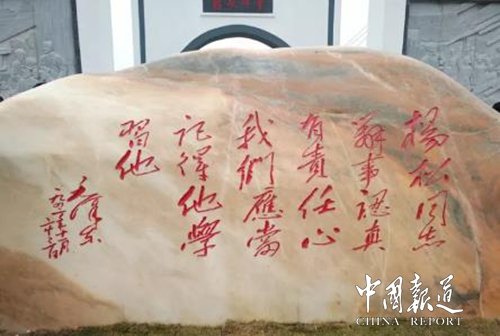 楊松同志
辦事認真
有責任心
我們應當
記得他學
習他
毛澤東
中國報道
CHINA REPORT